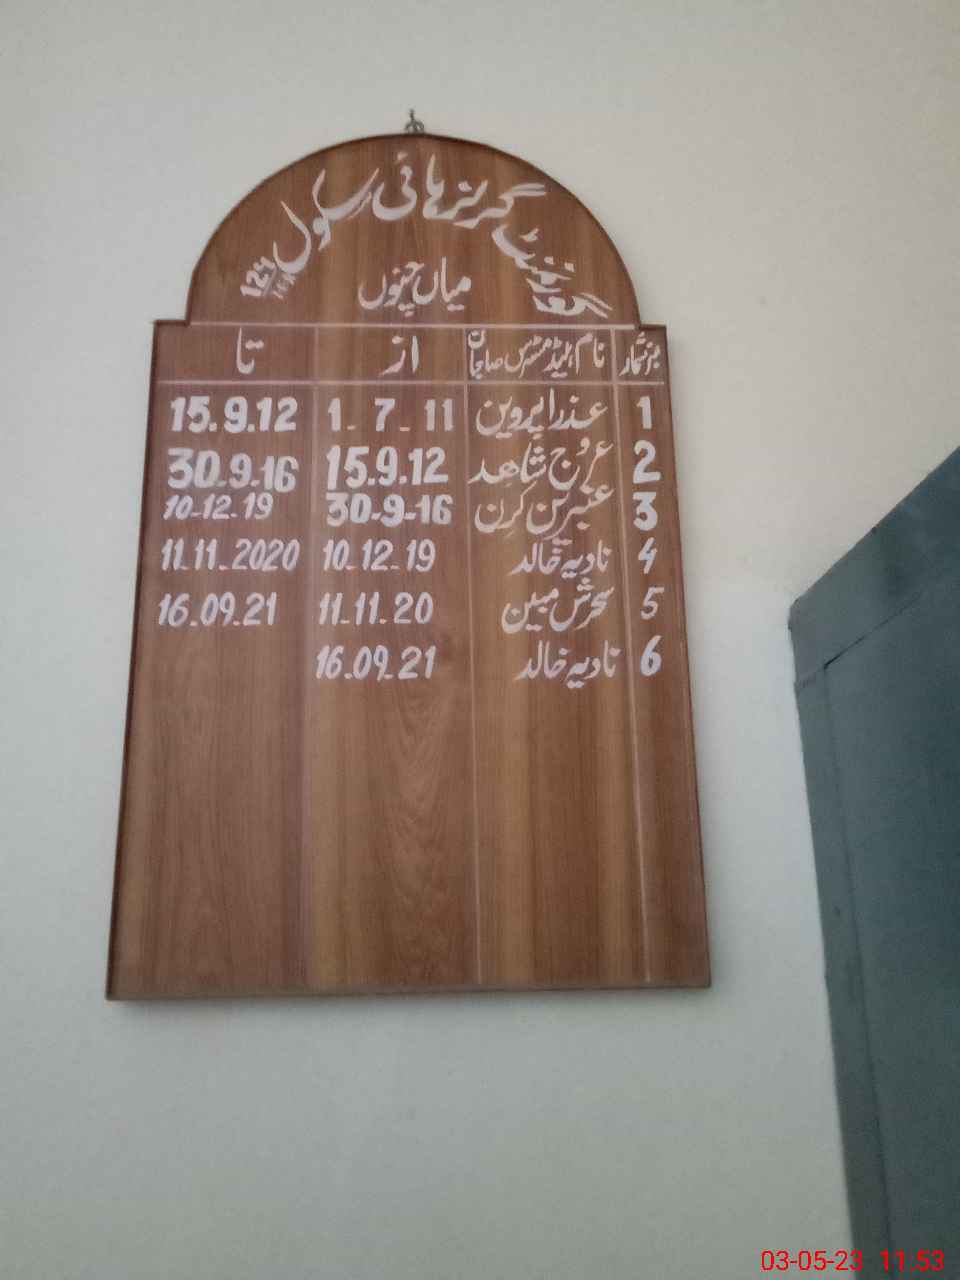 گورنمنٹ گرلز ہائی سکول 124
میاں چنوں
نمبر شمار نام ہیڈ مسٹرس صاحبان از تا
1 عذرا پروین 1-7-11 15.9.12
2 عروج شاھد 15.9.12 30.9.16
3 عنبرین کرن 30-9-16 10-12-19
4 نادیہ خالد 10-12-19 11.11.2020
5 سحرش مبین 11.11.20 16.09.21
6 نادیہ خالد 16.09.21
03-05-23 11:53